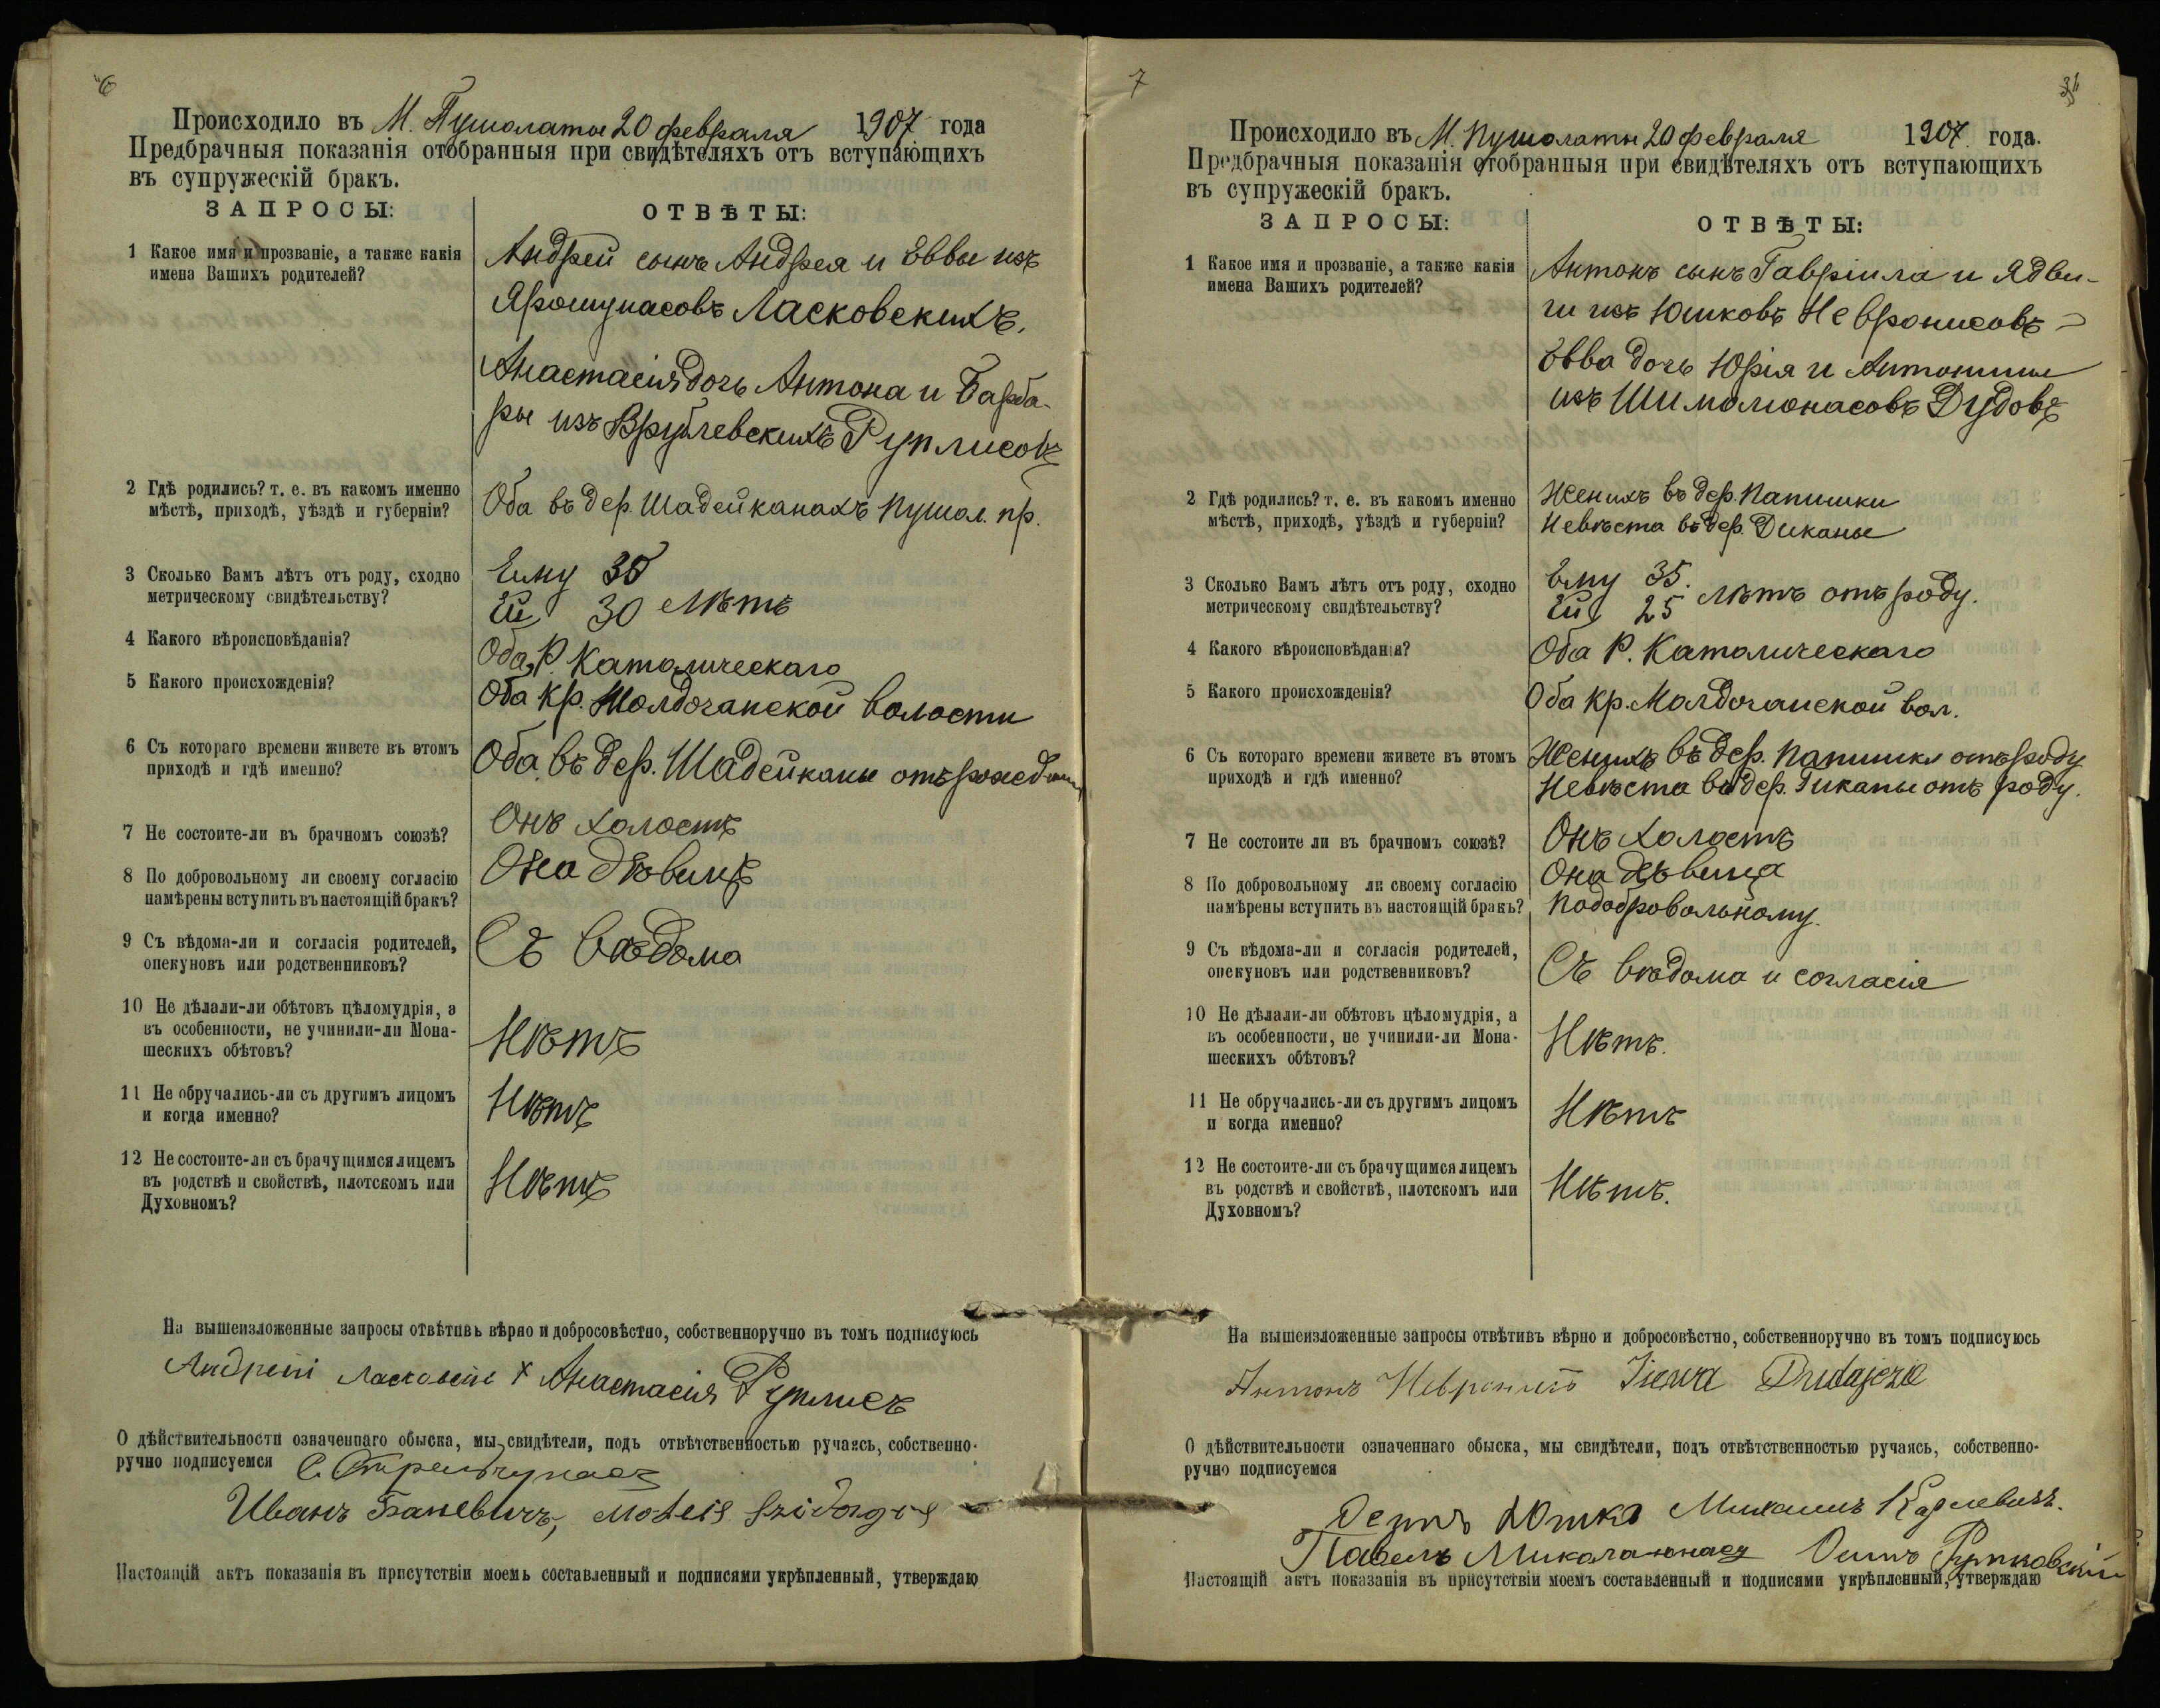 6
Происходило въ М. Пушолаты 20 февраля 1907 года
Предбрачныя показанія отобранныя при свидѣтеляхъ отъ вступающихъ
въ супружескій бракъ.
ЗАПРОСЫ: ОТВѢТЫ:
1 Какое имя и прозваніе, а также какія
имена Вашихъ родителей?
Андрей сынъ Андрея и Еввы изъ
Ярошунасовъ Ласковскихъ.
Анастасія дочь Антона и Барба-
ры изъ Врублевскихъ Руплисовъ
2 Гдѣ родились? т. е. въ какомъ именно
мѣстѣ, приходѣ, уѣздѣ и губерніи?
Оба въ дер. Шадейканахъ Пушол. пр.
3 Сколько Вамъ лѣтъ отъ роду, сходно
метрическому свидѣтельству?
Ему 35
Ей 30 лѣтъ
4 Какого вѣроисповѣданія?
Оба Р. Католическаго
5 Какого происхожденія?
Оба кр. Молдочанской волости
6 Съ котораго времени живете въ этомъ
приходѣ и гдѣ именно?
Оба въ дер. Шадейканы отъ рожденія
7 Не состоите-ли въ брачномъ союзѣ?
Онъ холостъ
Она дѣвица
8 По добровольному ли своему согласію
намѣрены вступить въ настоящій бракъ?
9 Съ вѣдома-ли и согласія родителей,
опекуновъ или родственниковъ?
Съ вѣдома
10 Не дѣлали-ли обѣтовъ цѣломудрія, а
въ особенности, не учинили-ли Мона-
шескихъ обѣтовъ?
Нѣтъ
11 Не обручались-ли съ другимъ лицомъ
и когда именно?
Нѣтъ
12 Не состоите-ли съ брачущимся лицемъ
въ родствѣ и свойствѣ, плотскомъ или
Духовномъ?
Нѣтъ
На вышеизложенные запросы отвѣтивъ вѣрно и добросовѣстно, собственноручно въ томъ подписуюсь
Андрей Ласковскій + Анастасія Руплисъ
О дѣйствительности означеннаго обыска, мы свидѣтели, подъ отвѣтственностью ручаясь, собственно-
ручно подписуемся
Иванъ Баневичъ,
Настоящій актъ показанія въ присутствіи моемъ составленный и подписями укрѣпленный, утверждаю
7
Происходило въ М. Пушолаты 20 февраля 1907 года.
Предбрачныя показанія отобранныя при свидѣтеляхъ отъ вступающихъ
въ супружескій бракъ.
ЗАПРОСЫ: ОТВѢТЫ:
1 Какое имя и прозваніе, а также какія
имена Вашихъ родителей?
Антонъ сынъ Гавріила и Ядви-
ги изъ Юшковъ Невронисовъ
Евва дочь Юрія и Антонины
изъ Шимолюнасовъ Дудовъ
2 Гдѣ родились? т. е. въ какомъ именно
мѣстѣ, приходѣ, уѣздѣ и губерніи?
Женихъ въ дер. Папишки
Невѣста въ дер. Диканы
3 Сколько Вамъ лѣтъ отъ роду, сходно
метрическому свидѣтельству?
Ему 35.
Ей 25 лѣтъ отъ роду.
4 Какого вѣроисповѣданія?
Оба Р. Католическаго
5 Какого происхожденія?
Оба кр. Молдочанской вол.
6 Съ котораго времени живете въ этомъ
приходѣ и гдѣ именно?
Женихъ въ дер. Папишки отъ роду
Невѣста въ дер. Гиканы отъ роду.
7 Не состоите ли въ брачномъ союзѣ?
Онъ холостъ
Она дѣвица
8 По добровольному ли своему согласію
намѣрены вступить въ настоящій бракъ?
Подобровольному.
9 Съ вѣдома-ли и согласія родителей,
опекуновъ или родственниковъ?
Съ вѣдома и согласія
10 Не дѣлали-ли обѣтовъ цѣломудрія, а
въ особенности, не учинили-ли Мона-
шескихъ обѣтовъ?
Нѣтъ.
11 Не обручались-ли съ другимъ лицомъ
и когда именно?
Нѣтъ
12 Не состоите-ли съ брачущимся лицемъ
въ родствѣ и свойствѣ, плотскомъ или
Духовномъ?
Нѣтъ.
На вышеизложенные запросы отвѣтивъ вѣрно и добросовѣстно, собственноручно въ томъ подписуюсь
Антонъ Невронисъ Iewa Dudajcza
О дѣйствительности означеннаго обыска, мы свидѣтели, подъ отвѣтственностью ручаясь, собственно-
ручно подписуемся
Осипъ Юшка Михаилъ Карлевичъ.
Павелъ Миколаюнасъ Осипъ Рупковскій
Настоящій актъ показанія въ присутствіи моемъ составленный и подписями укрѣпленный, утверждаю